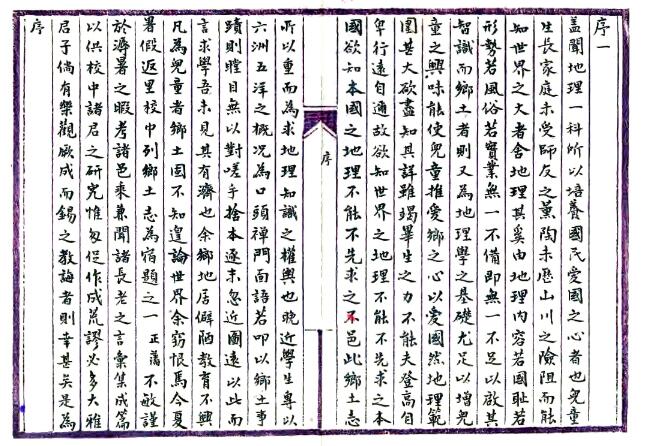 序一
盖闻地理一科所以培養國民爱國之心者也兒童
生長家庭未受師友之薰陶未歷山川之險阻而能
知世界之大者舍地理其奚由地理内容若國耻若
形勢若風俗若實業無一不備即無一不足以啟其
智識而鄉土者則又為地理學之基礎尤足以增兒
童之興味能使兒童推爱鄉之心以爱國然地理範
圍甚大欲盡知其詳雖竭畢生之力不能夫登高自
卑行遠自通故欲知世界之地理不能不先求之本
國欲知本國之地理不能不先求之本邑此鄉土志
序
所以重而為求地理知識之權輿也晚近學生專以
六洲五洋之概况為口頭禪門面語若叩以鄉土事
蹟則瞠目無以對嗟乎捨本逐末忽近圖遠以此而
言求學吾未見其有濟也余鄉地居僻陋教育不興
凡為兒童者鄉土固不知遑論世界余窃恨焉今夏
暑假返里校中列鄉土志為宿題之一正藩不敏謹
於溽暑之暇考諸邑乘兼聞諸長老之言彙集成篇
以供校中諸君之研究惟匆促作成荒謬必多大雅
君子倘有樂觀厥成而錫之教誨者則幸甚矣是為
序